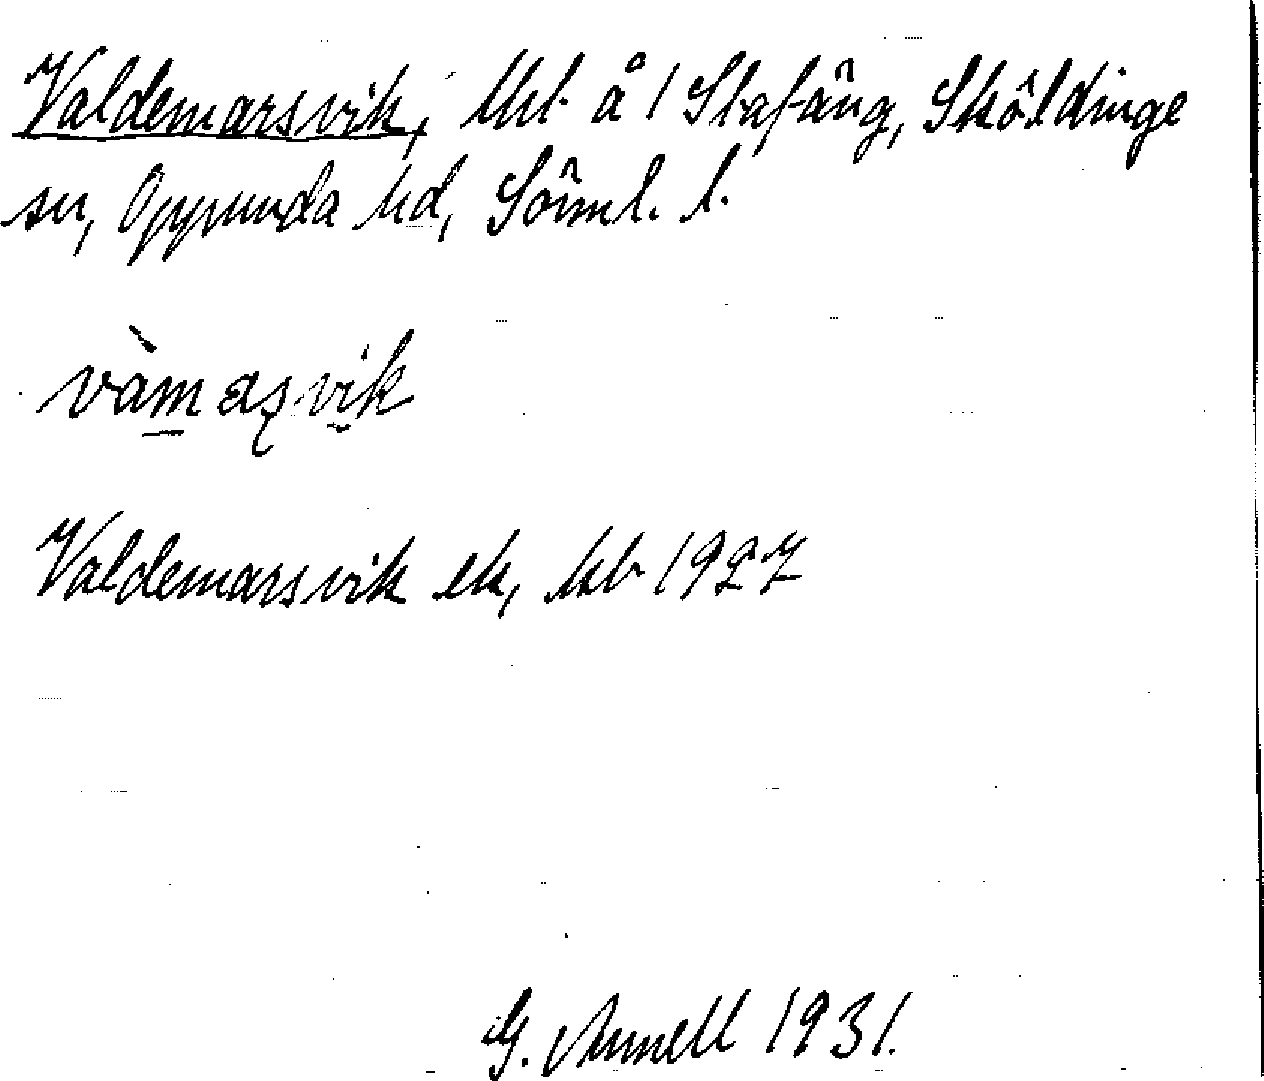 Valdemarsvik, lht å 1 Stafång, Sköldinge
sn, Oppunda hd, Söml. l.
vàmasvik
Valdemarsvik ek, kb 1927
G. Annell 1931.